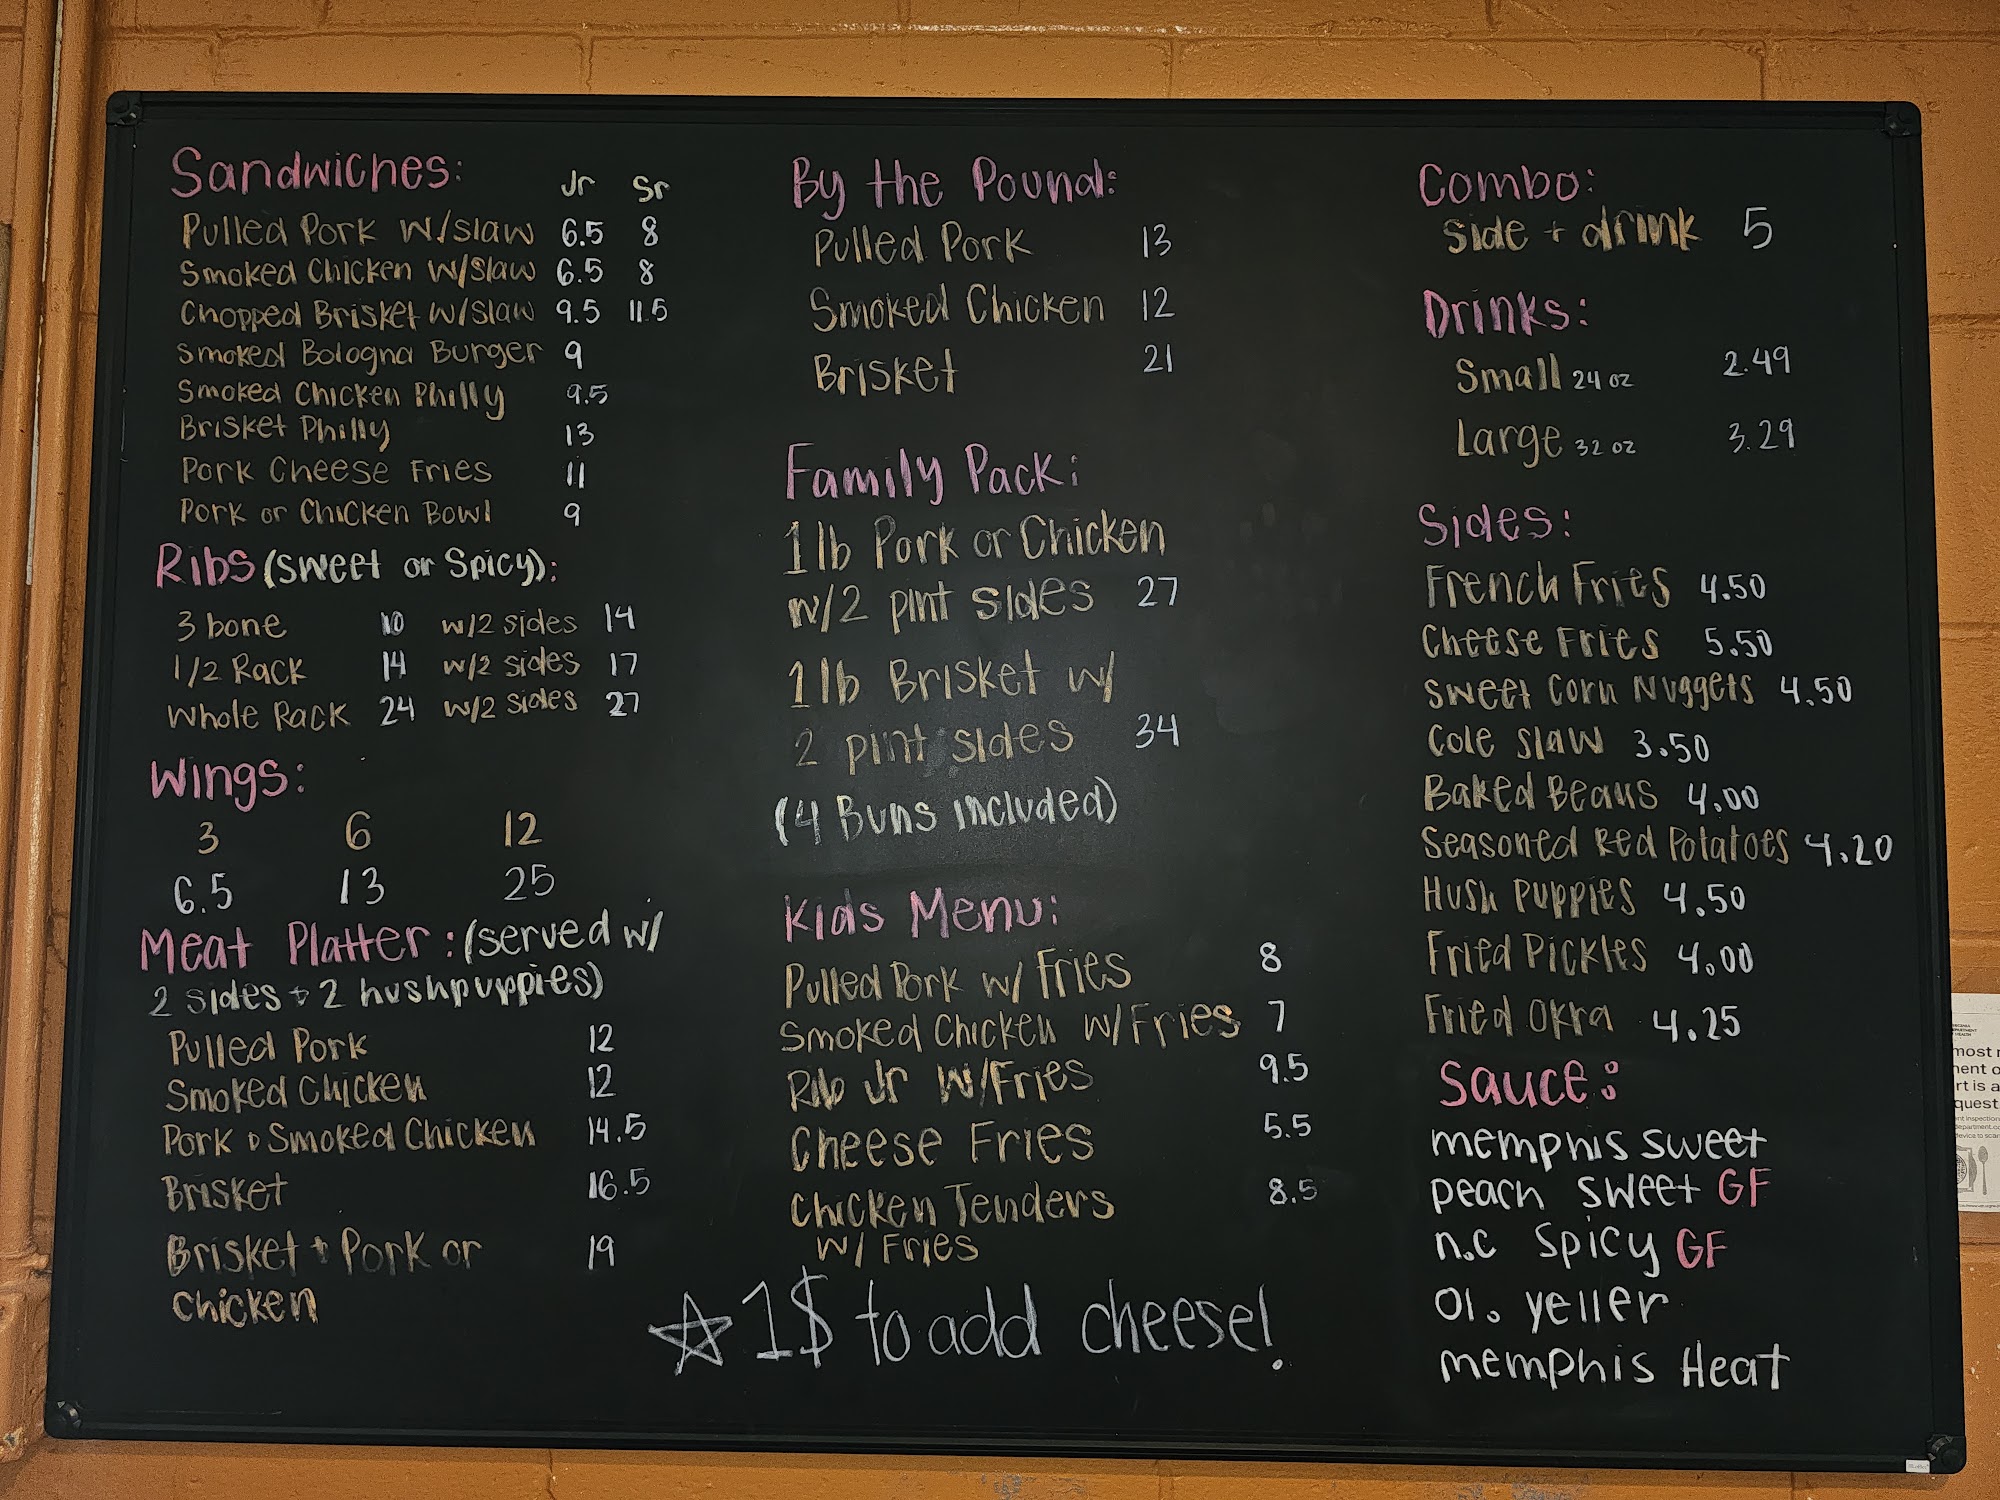 Sandwiches: Jr Sr
Pulled Pork w/slaw 6.5 8
Smoked Chicken w/slaw 6.5 8
Chopped Brisket w/slaw 9.5 11.5
Smoked Bologna Burger 9
Smoked Chicken Philly 9.5
Brisket Philly 13
Pork Cheese Fries 11
Pork or Chicken Bowl 9
Ribs (sweet or Spicy):
3 bone 10 w/2 sides 14
1/2 Rack 14 w/2 sides 17
Whole Rack 24 w/2 sides 27
Wings:
3 6 12
6.5 13 25
Meat Platter: (served w/
2 sides + 2 hushpuppies)
Pulled Pork 12
Smoked Chicken 12
Pork + Smoked Chicken 14.5
Brisket 16.5
Brisket + Pork or 19
chicken
By the Pound:
Pulled Pork 13
Smoked Chicken 12
Brisket 21
Family Pack:
1 lb Pork or Chicken
w/2 pint sides 27
1 lb Brisket w/
2 pint sides 34
(4 Buns included)
Kids Menu:
Pulled Pork w/ Fries 8
Smoked Chicken w/Fries 7
Rib Jr w/Fries 9.5
Cheese Fries 5.5
Chicken Tenders 8.5
w/ Fries
☆1$ to add cheese!
Combo:
side + drink 5
Drinks:
Small 24 oz 2.49
Large 32 oz 3.29
Sides:
French Fries 4.50
Cheese Fries 5.50
Sweet Corn Nuggets 4.50
Cole Slaw 3.50
Baked Beans 4.00
Seasoned Red Potatoes 4.20
Hush Puppies 4.50
Fried Pickles 4.00
Fried Okra 4.25
Sauce:
memphis sweet
peach sweet GF
n.c spicy GF
Ol. yeller
memphis Heat